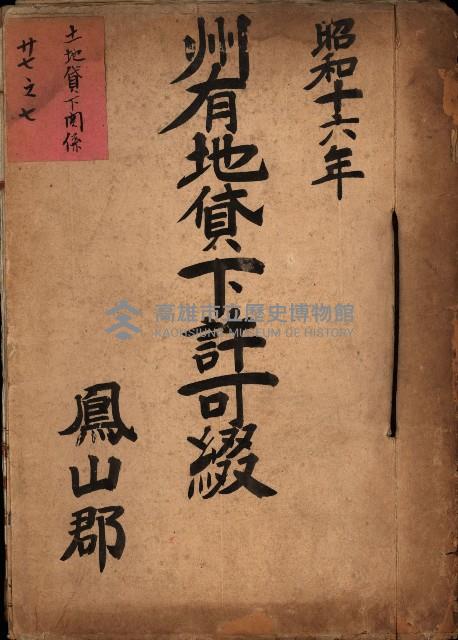 昭和十六年
州有地貸下許可綴
鳳山郡
土地貸下関係
廿七之七
高雄市立歷史博物館
KAOHSIUNG MUSEUM OF HISTORY